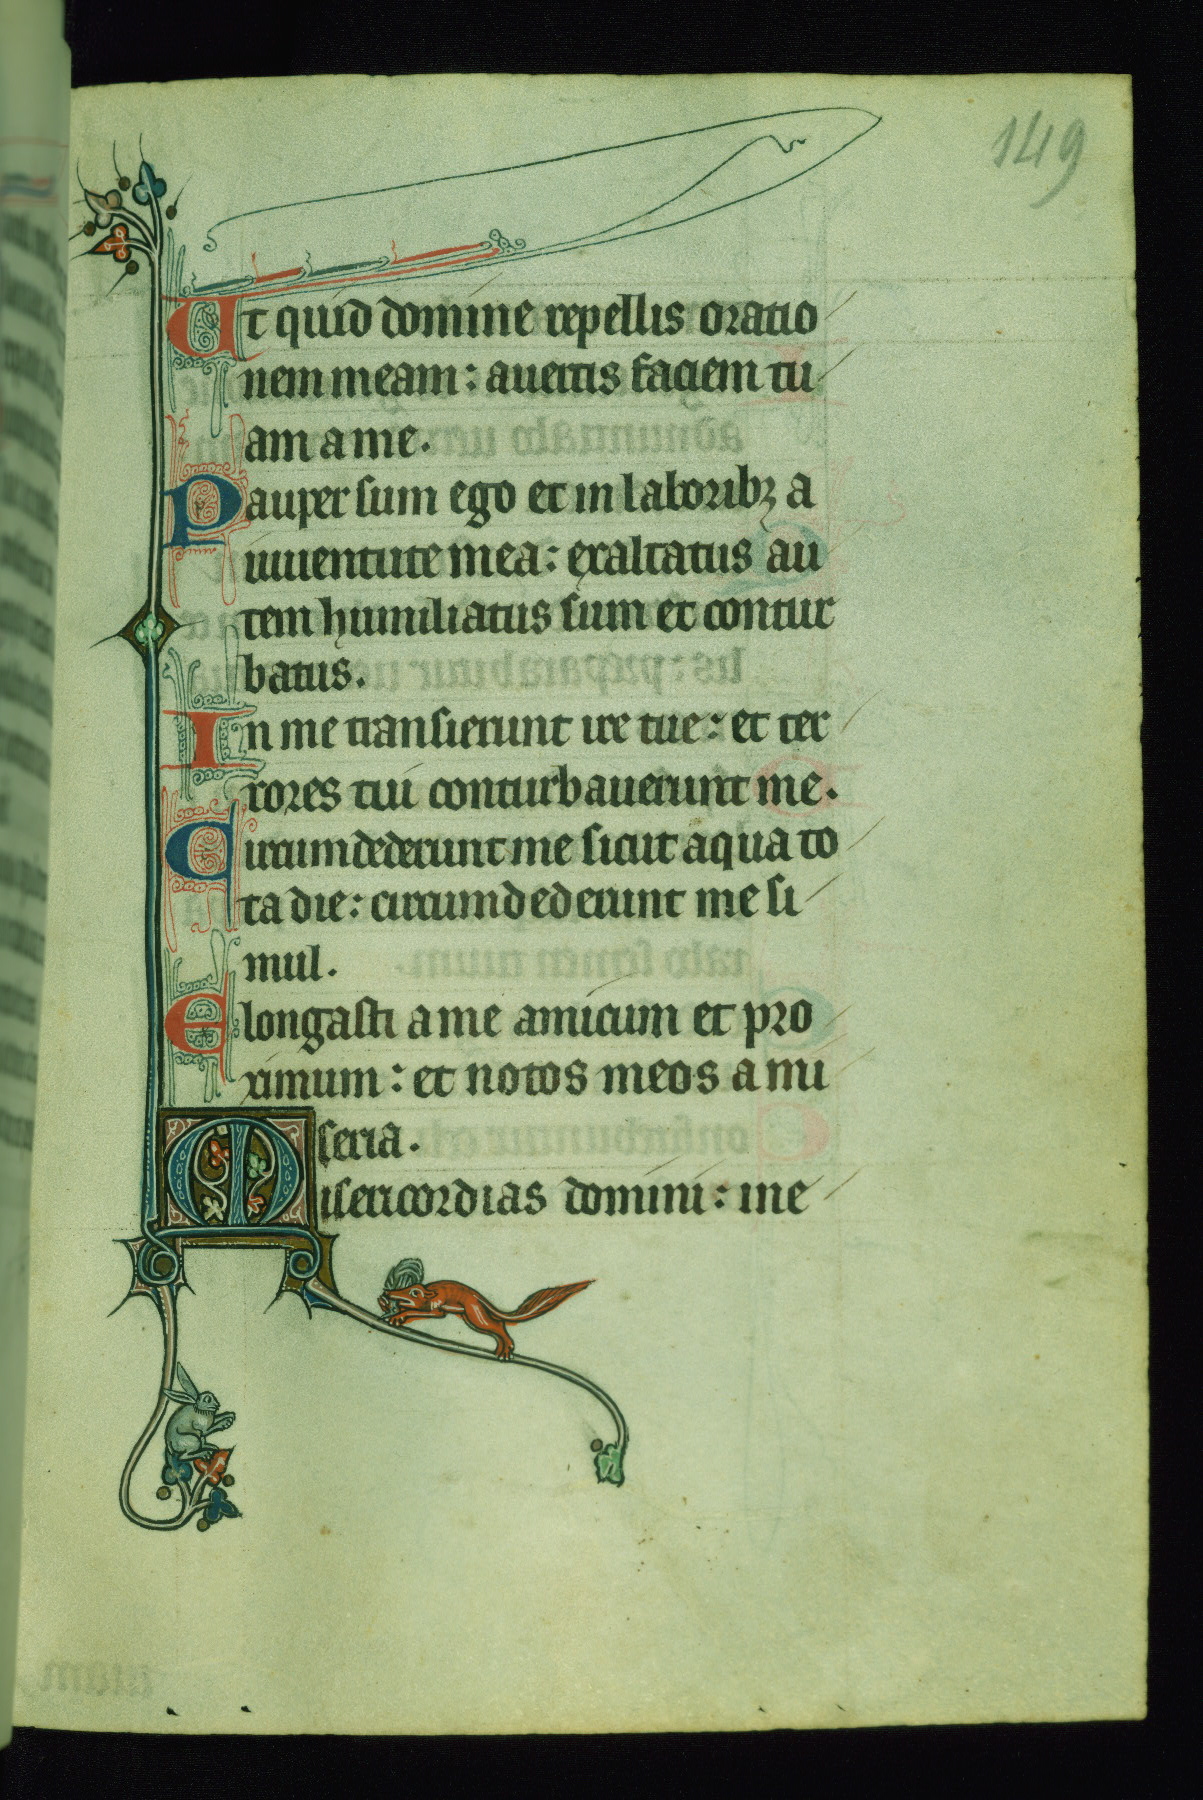 149
Ut quid domine repellis oratio
nem meam: auertis faciem tu
am a me.
Pauper sum ego et in laboribꝫ a
iuuentute mea: exaltatus au
tem humiliatus sum et contur
batus.
In me transierunt ire tue: et ter
rores tui conturbauerunt me.
Circumdederunt me sicut aqua to
ta die: circumdederunt me si
mul.
Elongasti a me amicum et pro
ximum: et notos meos a mi
seria.
Misericordias domini: in e